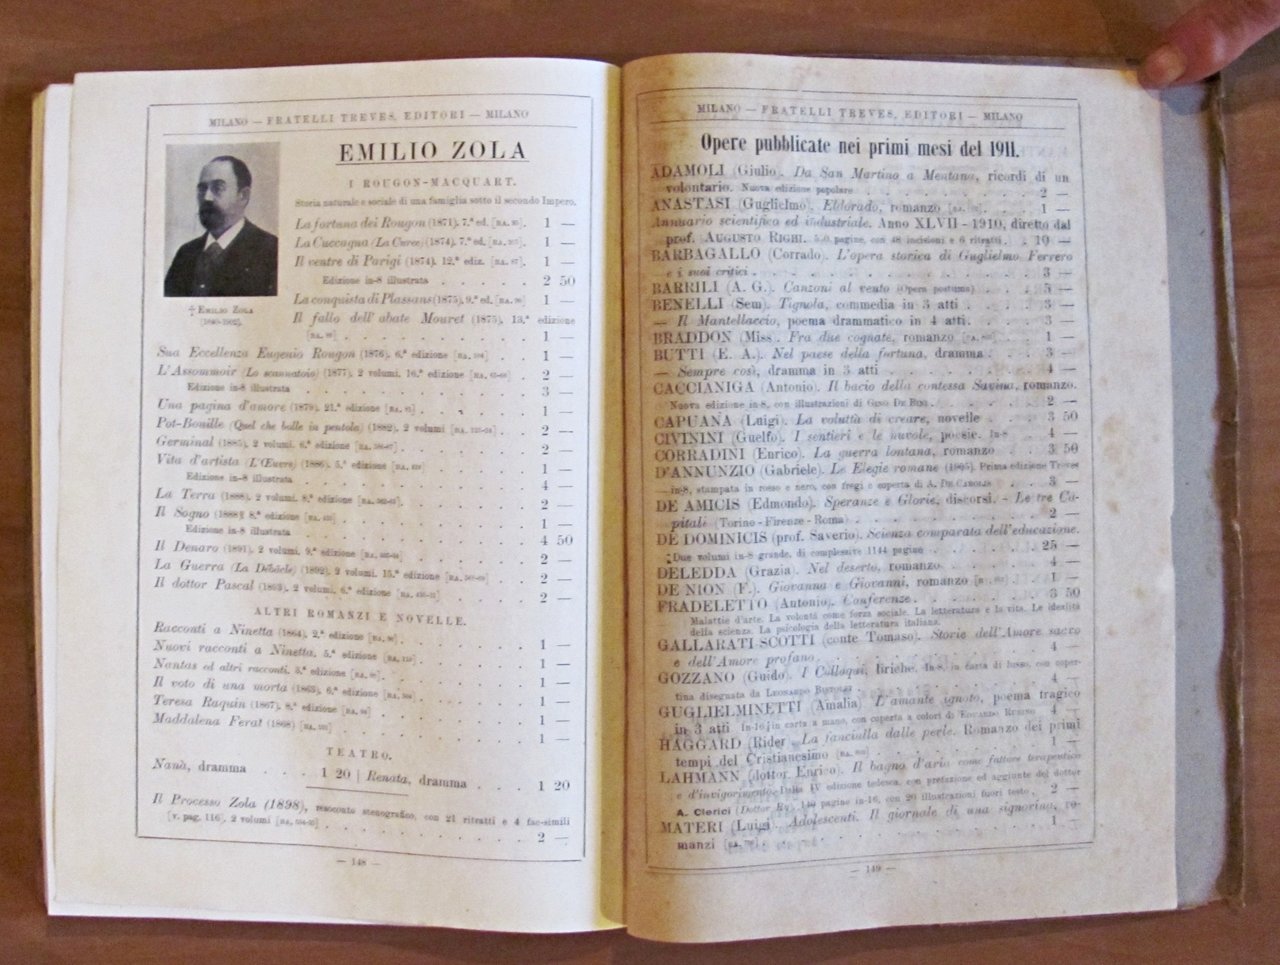 MILANO — FRATELLI TREVES, EDITORI — MILANO
EMILIO ZOLA
I ROUGON-MACQUART.
Storia naturale e sociale di una famiglia sotto il secondo Impero.
La fortuna dei Rougon (1871). 7.ª ed. 1 —
La Cuccagna (La Curée) (1874). 7.ª ed. 1 —
Il ventre di Parigi (1874). 12.ª ediz. 1 —
Edizione in-8 illustrata 2 50
La conquista di Plassans (1875). 9.ª ed. 1 —
† EMILIO ZOLA
[1840-1902].
Il fallo dell'abate Mouret (1875). 13.ª edizione
1 —
Sua Eccellenza Eugenio Rougon (1876). 6.ª edizione 1 —
L'Assommoir (Lo scannatoio) (1877). 2 volumi. 16.ª edizione 2 —
Edizione in-8 illustrata 3 —
Una pagina d'amore (1878). 21.ª edizione 1 —
Pot-Bouille (Quel che bolle in pentola) (1882). 2 volumi 2 —
Germinal (1885). 2 volumi. 6.ª edizione 2 —
Vita d'artista (L'Œuvre) (1886). 5.ª edizione 1 —
Edizione in-8 illustrata 4 —
La Terra (1888). 2 volumi. 8.ª edizione 2 —
Il Sogno (1888). 8.ª edizione 1 —
Edizione in-8 illustrata 4 50
Il Denaro (1891). 2 volumi. 9.ª edizione 2 —
La Guerra (La Débâcle) (1892). 2 volumi. 15.ª edizione 2 —
Il dottor Pascal (1893). 2 volumi. 6.ª edizione 2 —
ALTRI ROMANZI E NOVELLE.
Racconti a Ninetta (1864). 2.ª edizione 1 —
Nuovi racconti a Ninetta. 5.ª edizione 1 —
Nantas ed altri racconti. 3.ª edizione 1 —
Il voto di una morta (1866). 6.ª edizione 1 —
Teresa Raquin (1867). 8.ª edizione 1 —
Maddalena Ferat (1868) 1 —
TEATRO.
Nanà, dramma 1 20 | Renata, dramma 1 20
Il Processo Zola (1898), resoconto stenografico, con 21 ritratti e 4 fac-simili
[v. pag. 116]. 2 volumi 2 —
— 148 —
MILANO — FRATELLI TREVES, EDITORI — MILANO
Opere pubblicate nei primi mesi del 1911.
ADAMOLI (Giulio). Da San Martino a Mentana, ricordi di un
volontario. Nuova edizione popolare 2 —
ANASTASI (Guglielmo). Eldorado, romanzo 1 —
Annuario scientifico ed industriale. Anno XLVII - 1910, diretto dal
prof. AUGUSTO RIGHI. pagine, con 48 incisioni e 6 ritratti 10 —
BARBAGALLO (Corrado). L'opera storica di Guglielmo Ferrero
e i suoi critici 3 —
BARRILI (A. G.). Canzoni al vento (Opera postuma) 5 —
BENELLI (Sem). Tignola, commedia in 3 atti 3 —
— Il Mantellaccio, poema drammatico in 4 atti 3 —
BRADDON (Miss). Fra due cognate, romanzo 1 —
BUTTI (E. A.). Nel paese della fortuna, dramma 3 —
— Sempre così, dramma in 3 atti 4 —
CACCIANIGA (Antonio). Il bacio della contessa Savina, romanzo.
Nuova edizione in-8, con illustrazioni di GINO DE BINI 2 —
CAPUANA (Luigi). La voluttà di creare, novelle 3 50
CIVININI (Guelfo). I sentieri e le nuvole, poesie. In-8 4 —
CORRADINI (Enrico). La guerra lontana, romanzo 3 50
D'ANNUNZIO (Gabriele). Le Elegie romane (1905). Prima edizione Treves
in-8, stampata in rosso e nero, con fregi e coperta di A. DE CAROLIS 3 —
DE AMICIS (Edmondo). Speranze e Glorie, discorsi. - Le tre Ca-
pitali (Torino - Firenze - Roma) 2 —
DE DOMINICIS (prof. Saverio). Scienza comparata dell'educazione.
Due volumi in-8 grande, di complessive 1144 pagine 25 —
DELEDDA (Grazia). Nel deserto, romanzo 4 —
DE NION (F.). Giovanna e Giovanni, romanzo 1 —
FRADELETTO (Antonio). Conferenze 3 50
Malattie d'arte. La volontà come forza sociale. La letteratura e la vita. Le idealità
della scienza. La psicologia della letteratura italiana.
GALLARATI SCOTTI (conte Tomaso). Storie dell'Amore sacro
e dell'Amore profano 4 —
GOZZANO (Guido). I Colloqui, liriche. In-8, in carta di lusso, con coper-
tina disegnata da LEONARDO BISTOLFI 4 —
GUGLIELMINETTI (Amalia). L'amante ignoto, poema tragico
in 3 atti. In-16, in carta a mano, con coperta a colori di 4 —
HAGGARD (Rider). La fanciulla dalle perle. Romanzo dei primi
tempi del Cristianesimo 1 —
LAHMANN (dottor Enrico). Il bagno d'aria come fattore terapeutico
e d'invigorimento. Dalla IV edizione tedesca, con prefazione ed aggiunte del dottor
A. Clerici (Dottor Ry). 140 pagine in-16, con 20 illustrazioni fuori testo 2 —
MATERI (Luigi). Adolescenti. Il giornale di una signorina, ro-
manzi 1 —
— 149 —